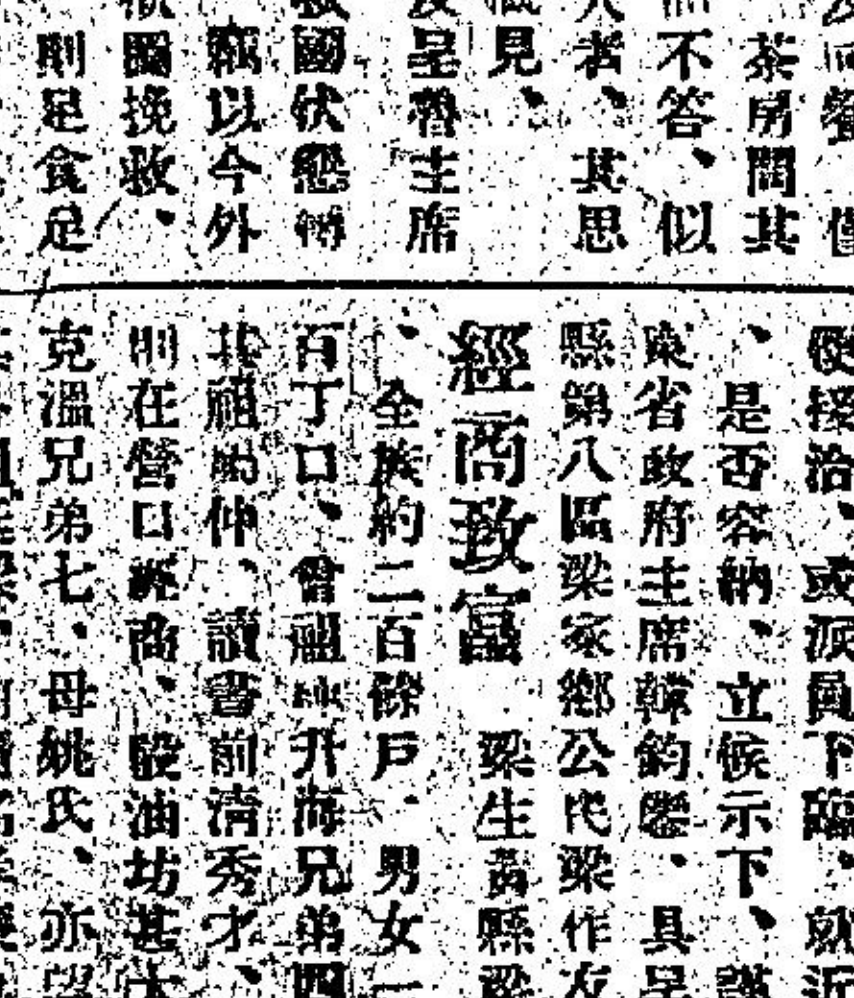 茶房問其
不答、似
者、其思
見、
呈魯主席
國伏懇轉
以今外
圖挽救、
則足食足
接洽、或派員下臨、就近
、是否容納、立候示下、謹
東省政府主席韓鈞鑒、具呈
縣第八區梁家鄉公民梁作友
經商致富
梁生黃縣梁
、全族約二百餘戶、男女一
百丁口、曾祖 升海兄弟四
其祖 仲、讀書前清秀才、
則在營口經商、設油坊甚大
克溫兄弟七、母姚氏、亦望